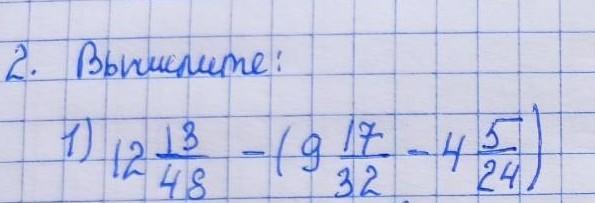 2. Вычислите:
1) 12 13/48 - (9 17/32 - 4 5/24)